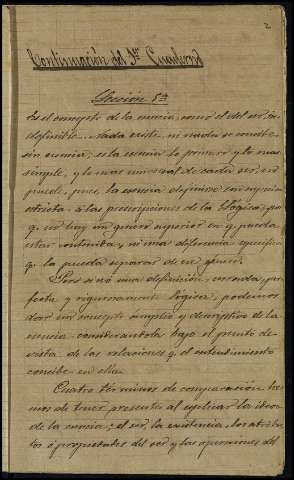 2
Continuación del 1er Cuaderno
Lección 5ª
Es el concepto de la esencia, como el del ser, in-
definible. Nada existe ni nada se concibe
sin esencia; es la esencia lo primero y lo mas
simple, y lo mas universal de cada ser, no
puede, pues, la esencia definirse
estricta á las prescripciones de la Lógica, por
q. no hay un genero superior en q. pueda
estar contenida, ni una diferencia especifica
q. la pueda separar de un género.
Pero si no una definición, per-
fecta y rigurosamente lógica, podemos
dar un concepto amplio y descriptivo de la
esencia considerandola bajo el punto de
vista de las relaciones q. el entendimiento
concibe en ella.
Cuatro términos de comparación he-
mos de tener presentes al esplicar la idea
de la esencia; el ser, la existencia, los atribu-
tos ó propiedades del ser y las operaciones del